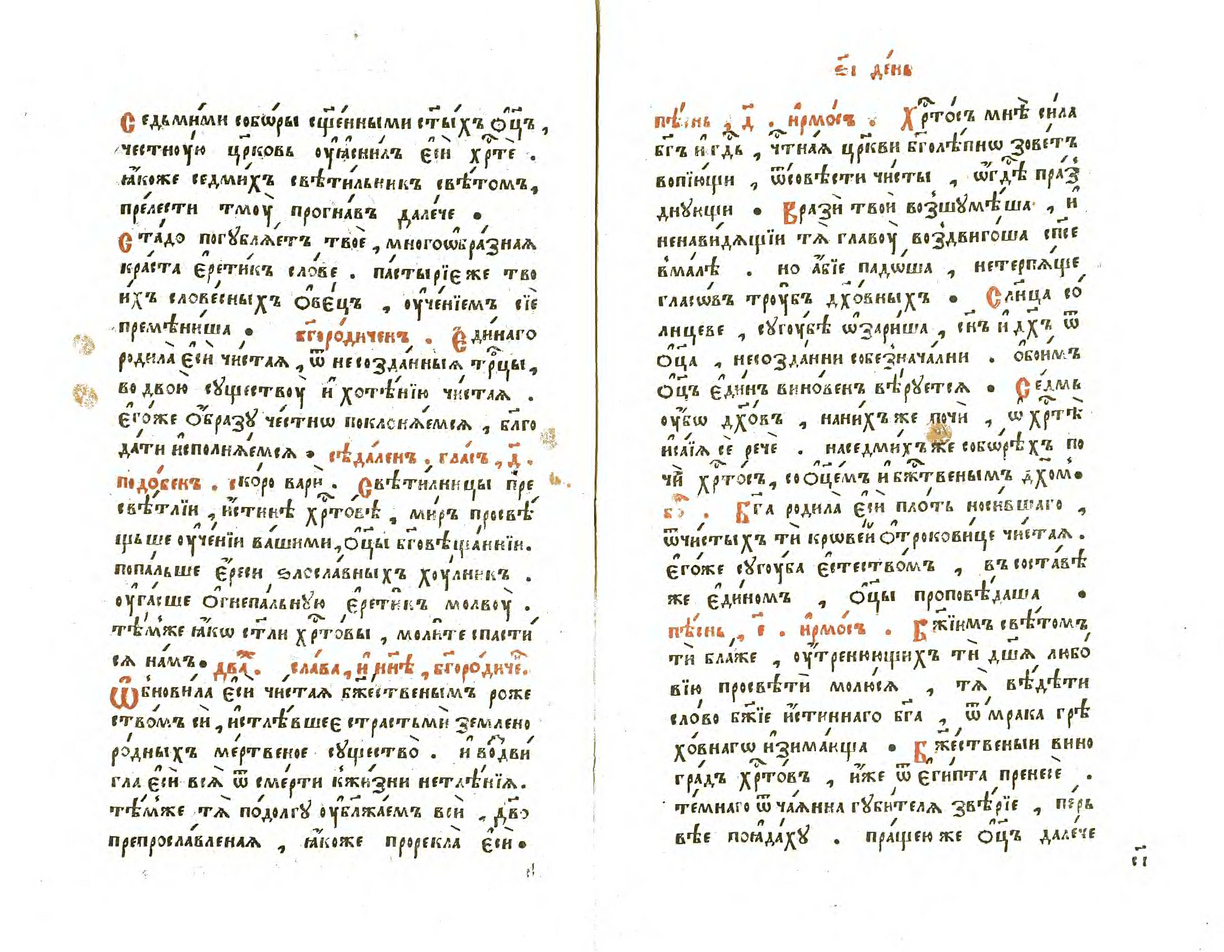 Седьми́ми собѡ́ры сщ҃е́нными ст҃ы́хъ ѻ҆ц҃ъ,
честноую цр҃ковь оуꙗсни́лъ є҆сѝ хр҃тѐ .
ꙗ҆́коже седми́хъ свѣти́льникъ свѣ́томъ,
пре́лести тмоу̀ прогна́въ дале́че •
Ста́до погубля́етъ твоѐ , многоѡбра́зная
кра́ста є҆рети́къ сло́ве . па́стырїє же тво
и́хъ слове́сныхъ ѻ҆ве́цъ , оуче́нїемъ сїѐ
премѣни́ша • бг҃оро́диченъ . Є҆ди́наго
родила̀ є҆сѝ чи́стая , ѿ несозда́нныѧ тр҃цы,
во двою̀ существоу̀ и҆ хотѣ́нїю чи́стая .
є҆го́же ѻ҆́бразу че́стнѡ покланя́емся , бл҃го
да́ти и҆сполня́емся • сѣда́ленъ . гла́съ , д҃ .
подо́бенъ . ско́ро варѝ . Свѣти́лницы пре
свѣ́тлїи , и҆́стинѣ хр҃то́вѣ , ми́ръ просвѣ́
щьше оуче́нїи ва́шими , ѻ҆ц҃ы бг҃овѣща́ннїи.
попа́льше є҆́реси ѕлосла́вныхъ хоу́лникъ .
оуга́сше ѻ҆гнепа́льную є҆рети́къ молвоу̀ .
тѣ́мже ꙗ҆́кѡ ст҃ли хр҃то́вы , моли́те спасти́
ся на́мъ • два́ . сла́ва , и҆ нн҃ѣ , бг҃оро́диче.
Ѡбнови́ла є҆сѝ чи́стая бж҃е́ственымъ роже
ство́мъ сѝ , и҆стлѣ́вшеє страстьмѝ земле́но
ро́дныхъ ме́ртвеное существо̀ . и҆ воздви́
гла є҆сѝ всѧ̀ ѿ сме́рти к жи́зни нетлѣ́нїѧ.
тѣ́мже тѧ̀ подолгу оублжа́емъ всѝ , дв҃о
препросла́вленая , ꙗ҆́коже прорекла̀ є҆сѝ •
є҃і де́нь
пѣ́снь , д҃ . и҆рмо́съ . Хр҃то́съ мнѣ̀ си́ла
бг҃ъ и҆ гд҃ь , чт҃ная цр҃кви бг҃олѣ́пнѡ зове́тъ
вопїю́щи , ѿ со́вѣсти чи́сты , ѡ҆ гд҃ѣ пра́з
днующи • Вразѝ твоѝ возшумѣ́ша , и҆
ненави́дящїи тѧ̀ главоу̀ воздвиго́ша сп҃се
вма́лѣ . но а҆́бїе падо́ша , нетерпя́ще
гла́сѡвъ троу́бъ дх҃о́вныхъ • Слн҃ца со́
лнцеве , сугоу́бѣ ѡ҆зари́ша , сн҃ъ и҆ дх҃ъ ѿ
ѻ҆ц҃а , несозда́нни собезнача́лни . ѻ҆бои́мъ
ѻ҆ц҃ъ є҆ди́нъ вино́венъ вѣ́руется • Се́дмь
оу́бѡ дх҃о́въ , на ни́хъ же почѝ , ѡ҆ хр҃тѣ̀
и҆са́їѧ сѐ речѐ . на седми́хъ же собо́рѣхъ по
чѝ хр҃то́съ , со ѻ҆ц҃е́мъ и҆ бж҃твенымъ дх҃ом•
бо҃ . Бг҃а родила̀ є҆сѝ пло́ть носи́вшаго ,
ѿ чи́стыхъ тѝ крѡве́й ѻ҆трокови́це чи́стая .
є҆го́же сугоу́ба є҆стество́мъ , въ соста́вѣ
же є҆ди́номъ , ѻ҆ц҃ы проповѣ́даша •
пѣ́снь , є҃ . и҆рмо́съ . Бж҃їимъ свѣ́томъ
тѝ бла́же , оу́тренюющихъ тѝ дш҃ѧ любо́
вїю просвѣтѝ молю́ся , тѧ̀ вѣ́дѣти
сло́во бж҃їе и҆́стиннаго бг҃а , ѿ мра́ка грѣ
хо́внагѡ и҆зима́юща • Бж҃е́ственыи вино
гра́дъ хр҃то́въ , и҆́же ѿ є҆ги́пта пренесѐ .
те́мнаго ѿчая́нна губи́теля звѣ́рїе , пе́рь
вѣе поꙗда́ху . пра́щею же ѻ҆ц҃ъ дале́че
є҃і